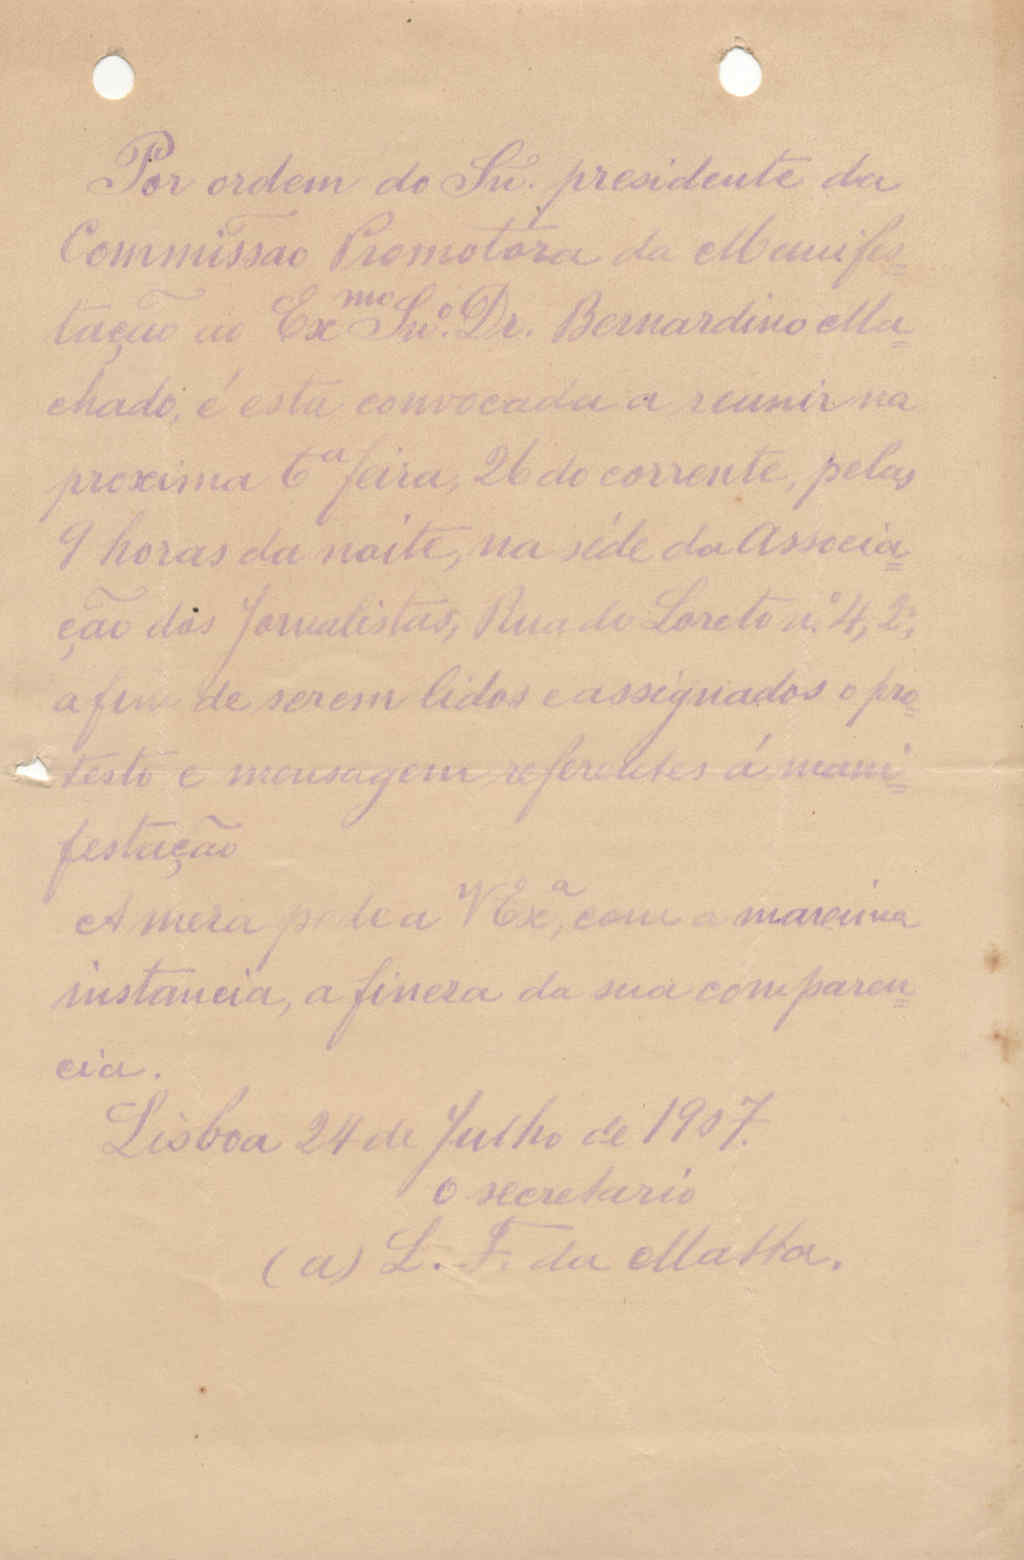 Por ordem do Snr. presidente da
Commissão Promotora da Manifes=
tação ao Exmo Snr. Dr. Bernardino Ma=
chado, é esta convocada a reunir na
proxima 6ª feira, 26 do corrente, pelas
9 horas da noite, na séde da Associa=
ção dos Jornalistas, Rua do Loreto nº 4, 2º,
afim de serem lidos e assignados o pro=
testo e mensagem referentes á mani=
festação
A meza pede a V Exª, com a maxima
instancia, a fineza da sua comparen=
cia.
Lisboa 24 de Julho de 1907.
O secretario
(a) L. F. da Matta.